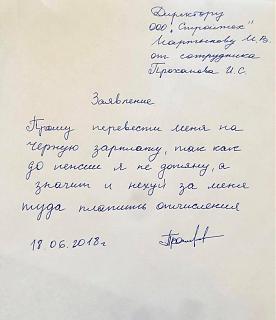 Директору
ООО "Стройтех"
Мартынову М.В.
от сотрудника
Проханова И.С.
Заявление
Прошу перевести меня на
черную зарплату, так как
до пенсии я не дотяну, а
значит и нехуй за меня
туда платить отчисления
18.06.2018г